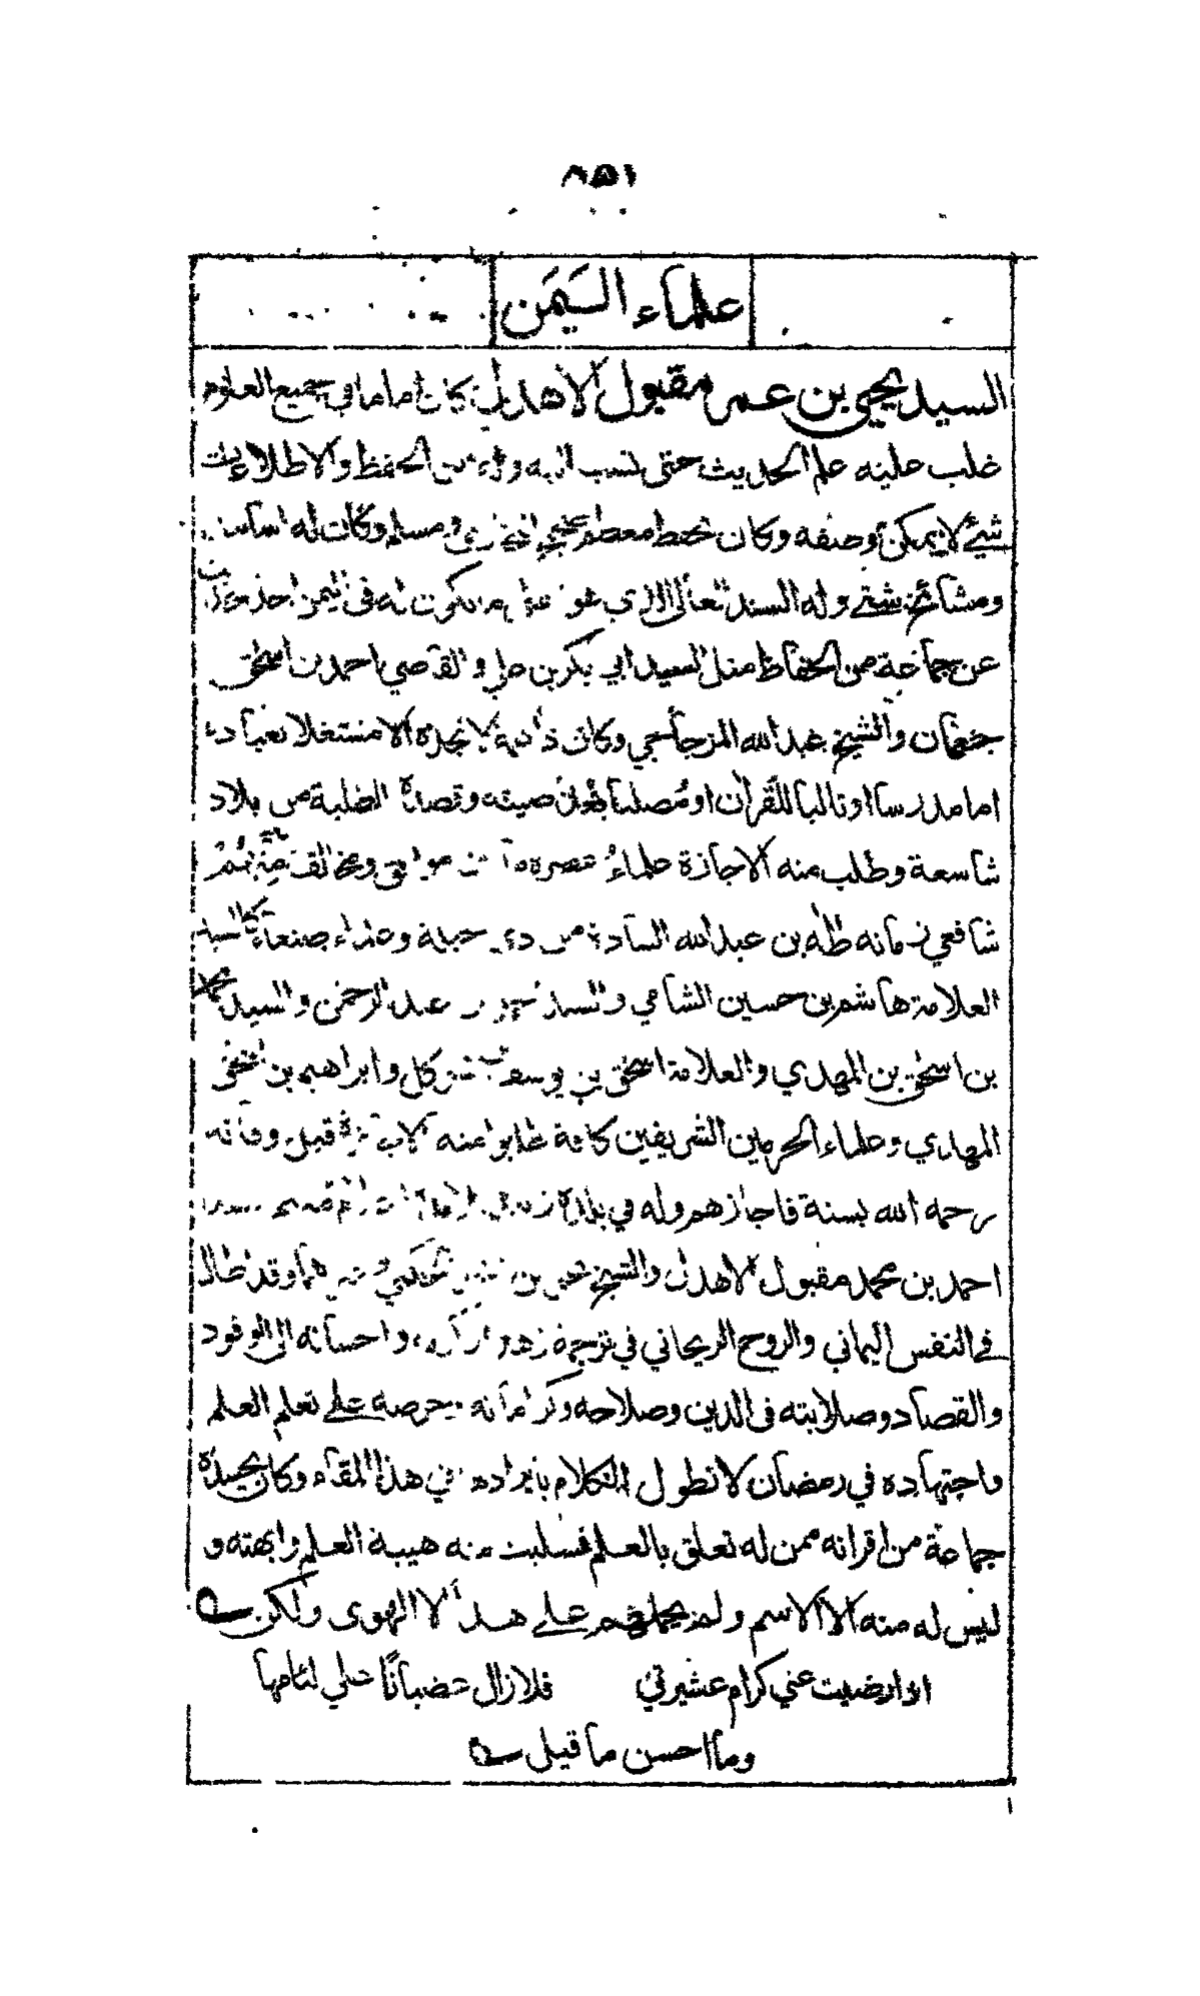 ٨٥١
علماء اليمن
السيد يحيى بن عمر مقبول الاهدل كان اماما في جميع العلوم
غلب عليه علم الحديث حتى نسب اليه وله من الحفظ والاطلاع
شئ لا يمكن وصفه وكان يحفظ معظم صحيح ومسلم وكان له اسانيد
ومشائخ شتى وله السند العالي الذي في اليمن اخذ
عن جماعة من الحفاظ مثل السيد ابي بكر بن علي والقاضي احمد بن اسحق
جغمان والشيخ عبد الله المزجاجي وكان لا تجده الا مشتغلا
اما مدرسا او تاليا للقرآن او مصليا صيته وقصده الطلبة من بلاد
شاسعة وطلب منه الاجازة علماء عصره
شافعي زمانه طه بن عبد الله السادة من ذي جبلة وعلماء صنعاء كالسيد
العلامة هاشم بن حسين الشامي والسيد عبد الرحمن والسيد محمد
بن اسحق بن المهدي والعلامة اسحق بن يوسف متوكل وابراهيم بن اسحق
المهدي وعلماء الحرمين الشريفين كافة طلبوا منه الاجازة قبل وفاته
رحمه الله بسنة فاجازهم وله في
احمد بن محمد مقبول الاهدل والشيخ وقد اطال
في النفس اليماني والروح الريحاني في ترجمة زهده واحسانه الى الوفود
والقصاد وصلابته في الدين وصلاحه وكراماته وحرصه على تعلم العلم
واجتهاده في رمضان لا نطول الكلام بايراده في هذا المقام وكان يحسده
جماعة من اقرانه ممن له تعلق بالعلم فسلبت منه هيبة العلم وابهته و
ليس له منه الا الاسم ولم يحملهم على هذا الا الهوى ولكن
اذا رضيت عني كرام عشيرتي فلا زال غضبانا علي لئامها
وما احسن ما قيل